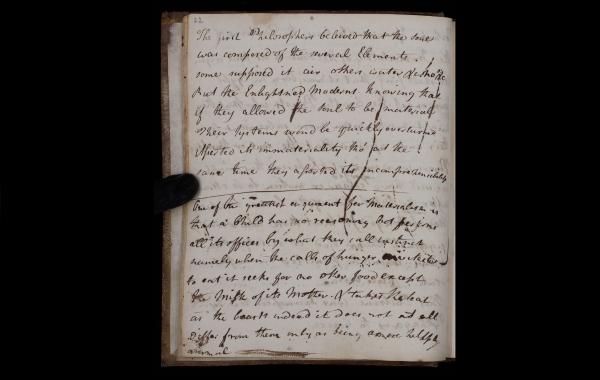 22
The first Philosophers believed that the soul
was composed of the several Elements.
some supposed it air others water & smoke
But the Enlightned Moderns. Knowing that
if they allowed the soul to be material
Their systems would be quickly overturnd
asserted its immateriality tho' at the
same time they asserted its incomprehensibility
One of the greatest argument for Materialism is
that a Child has no reasoning but performs
all its offices by what they call instinct
namely when the calls of hunger
to eat it seeks for no other food except
the Milk of its Mother. & takes
as the beasts indeed it does not at all
Differ from them only as being a more helpless
animal